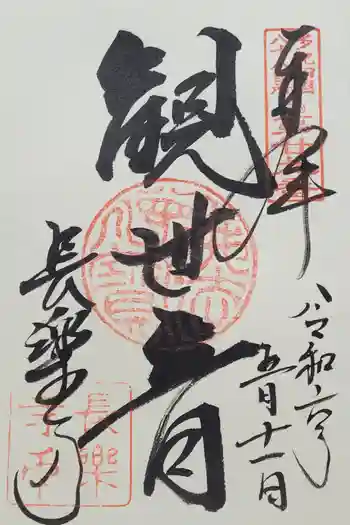 奉拝
観世音
長樂寺
令和六年
五月十一日
長樂
寺印